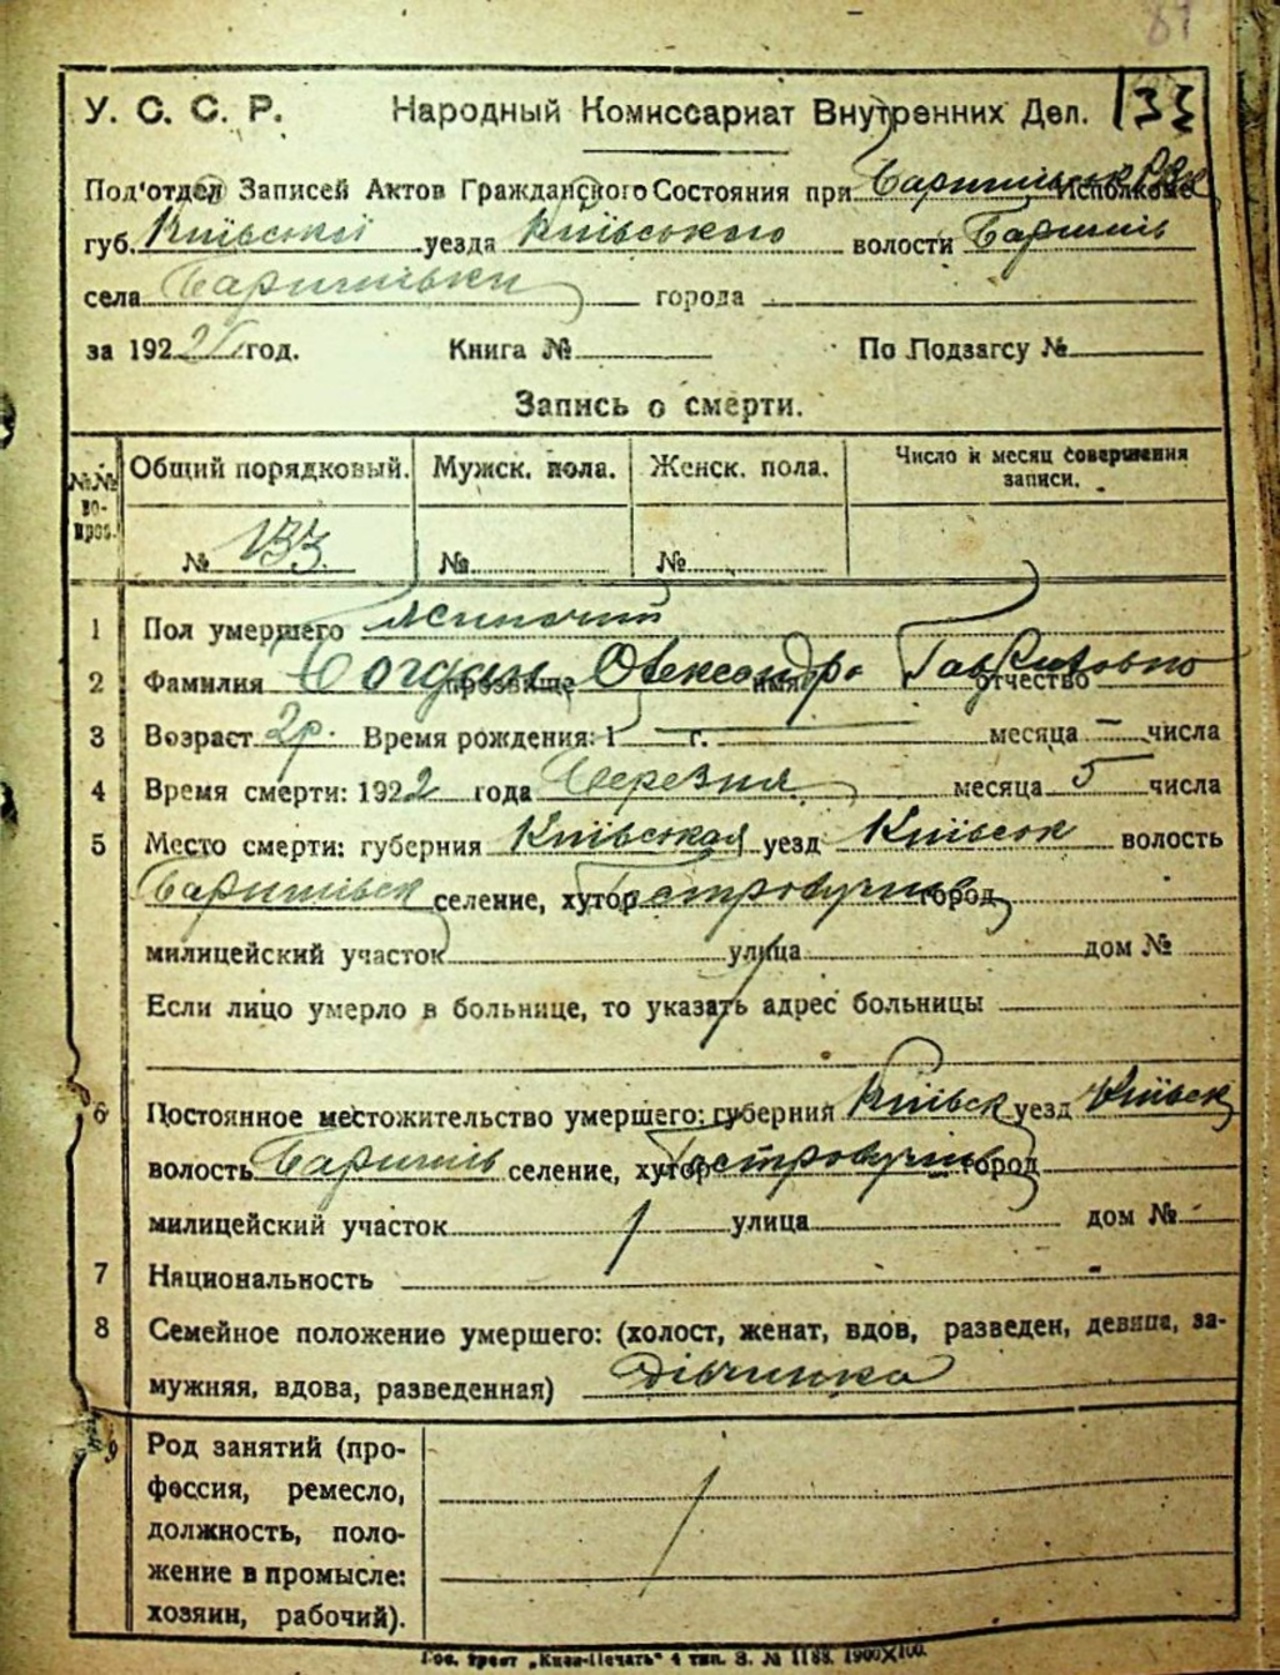 81
У. С. С. Р. Народный Комиссариат Внутренних Дел. 133
Под'отдел Записей Актов Гражданского Состояния при Баришівськ Исполкоме
губ. Київської уезда Київського волости Баришів
села Баришівки города
за 192 год. Книга № По Подзагсу №
Запись о смерти.
№№ во- прос. Общий порядковый. Мужск. пола. Женск. пола. Число и месяц совершения записи.
№ 133. № №
1 Пол умершего жиночий
2 Фамилия Богдан прозвище Олександра имя отчество
3 Возраст 2р. Время рождения: 1 г. месяца — числа
4 Время смерти: 1922 года Березня месяца 5 числа
5 Место смерти: губерния Київская уезд Київськ волость
Баришівськ селение, хутор город
милицейский участок улица дом №
Если лицо умерло в больнице, то указать адрес больницы
6 Постоянное местожительство умершего: губерния Київськ уезд Київськ
волость Баришів селение, хутор город
милицейский участок улица дом №
7 Национальность
8 Семейное положение умершего: (холост, женат, вдов, разведен, девица, за-
мужняя, вдова, разведенная) Дівчинка
9 Род занятий (про-
фессия, ремесло,
должность, поло-
жение в промысле:
хозяин, рабочий).
Гос. трест „Киев-Печать" 4 тип. З. № 1188. 1900×100.